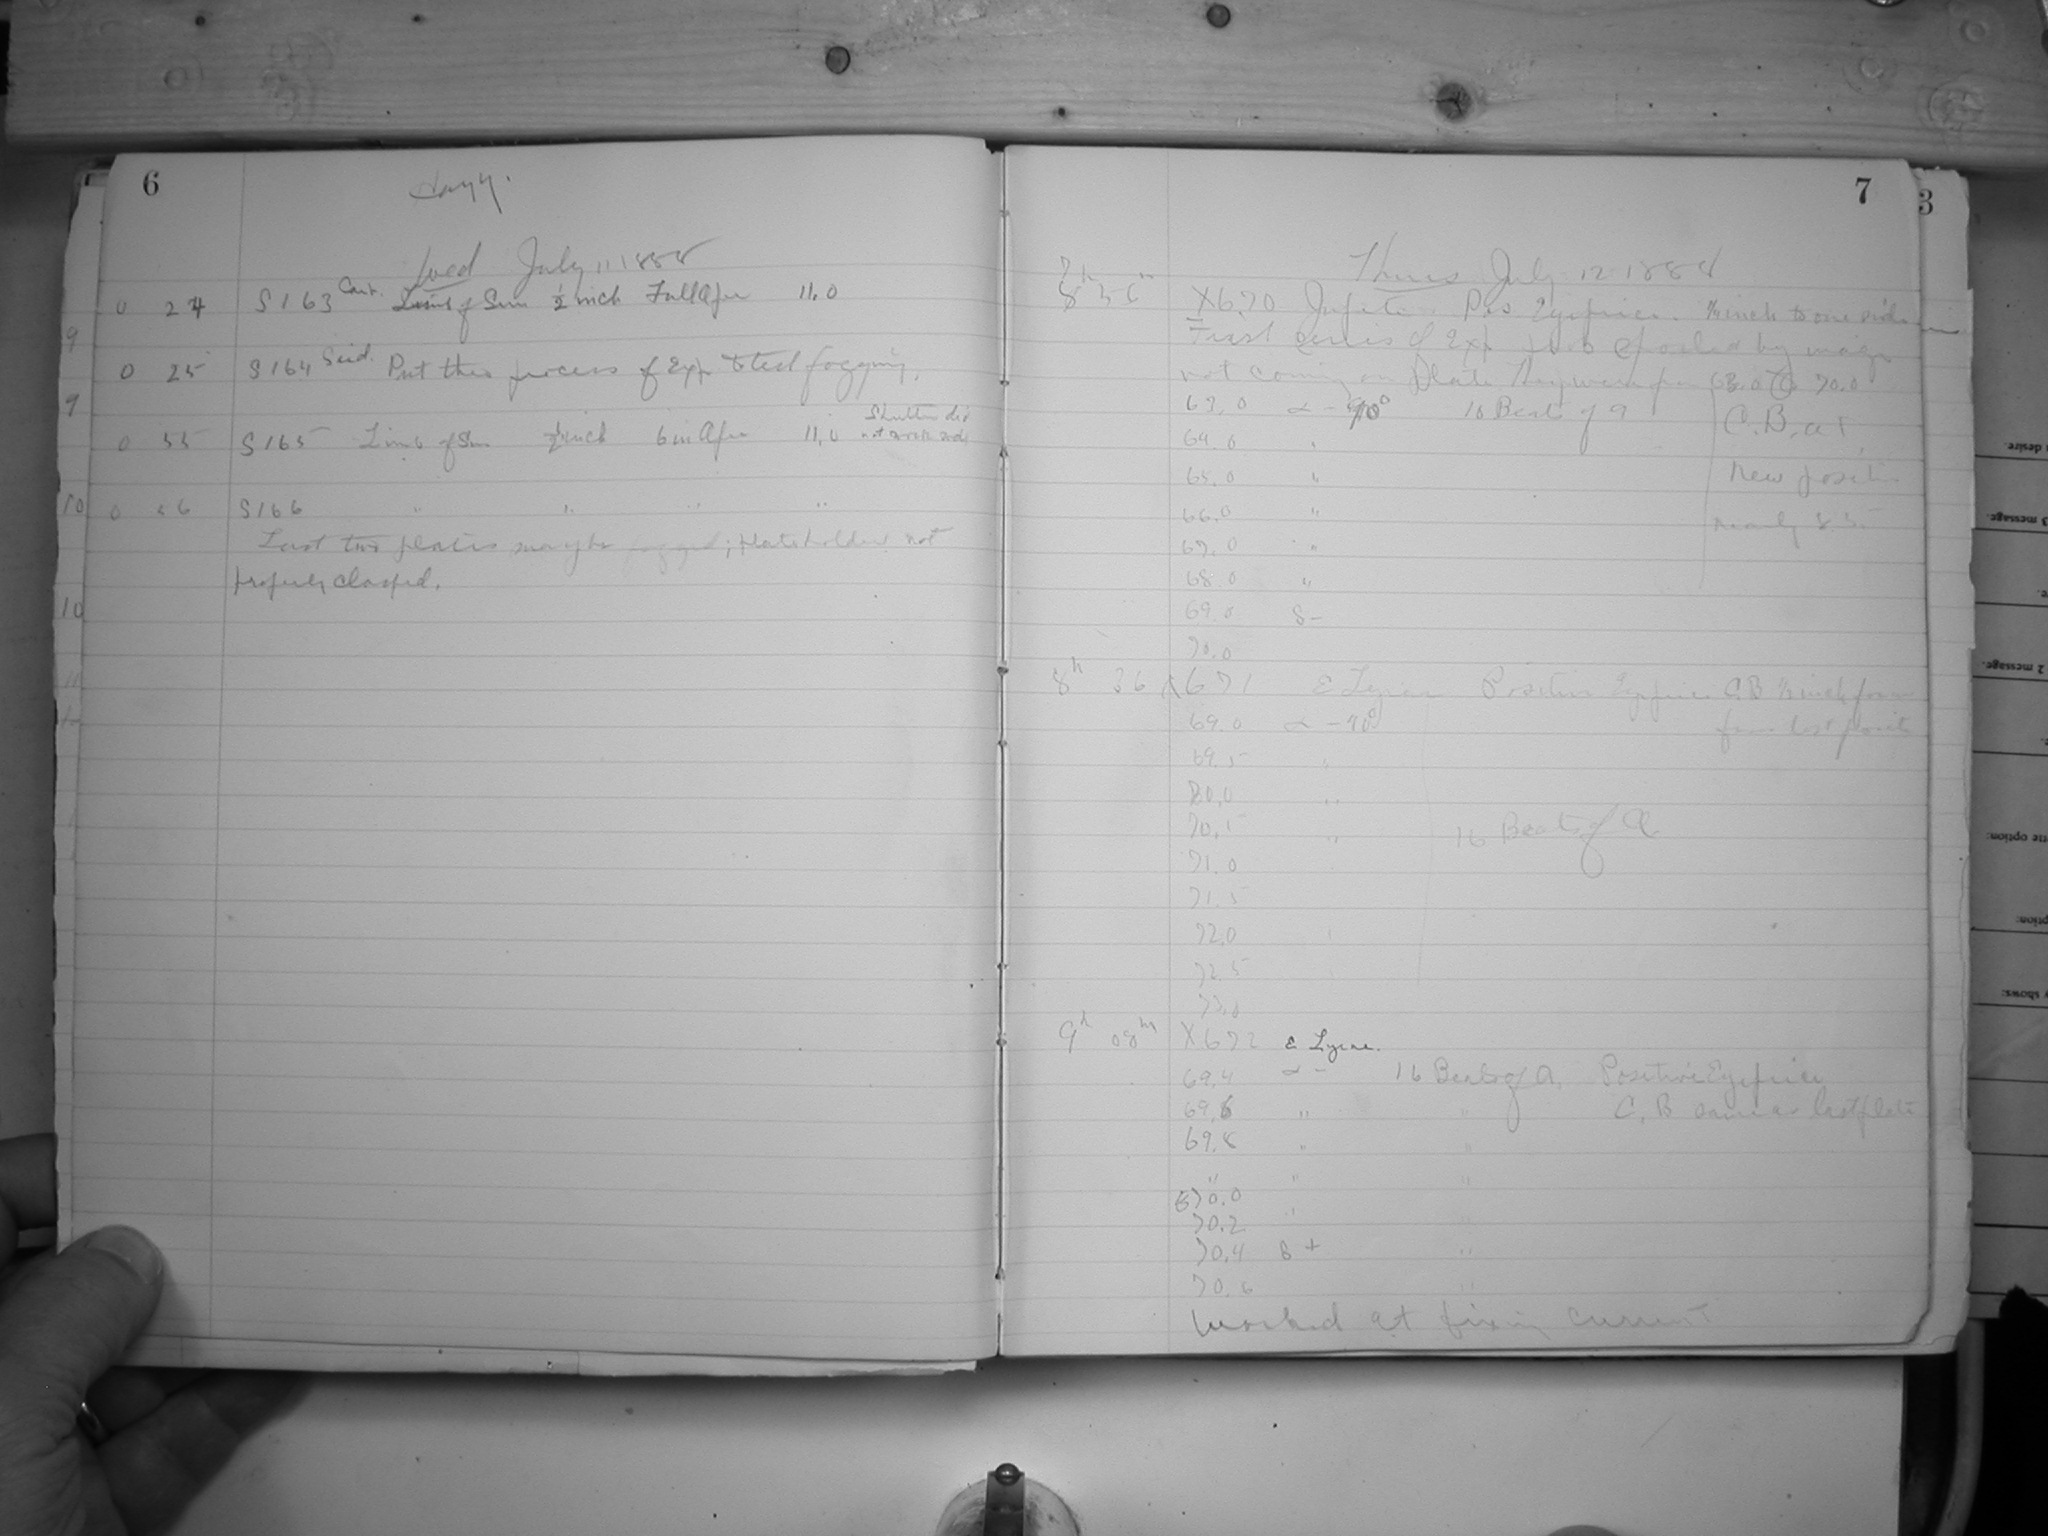 6
Wed July 11 1888
0 24 S163 Cart. Limb of Sun ½ inch Full Ape 11.0
0 25 S164 Seed. Put thro process of Exp to test fogging.
0 55 S165 Limb of Sun ½ inch 6 in Ape 11.0 Shutter did
not work
0 56 S166 " " " "
Last two plates may be fogged; plateholder not
properly clasped.
9
9
10
10
7
3
Thurs July 12 1888
X670 Jupiter. Pos Eyepiece. ½ inch to one side
First series of Exp spoiled by image
not coming on Plate They were from 63.0 to 70.0
63.0 α - 90° 16 Beats of a
C.B. at
64.0 "
65.0 "
New position
66.0 "
nearly 8.5
67.0 "
68.0 "
69.0 S-
70.0
8h 36 X671 ε Lyrae Positive Eyepiece CB ½ inch
from last
69.0 α - 90°
69.5 "
70.0 "
70.5 " 16 Beats of a
71.0
71.5
72.0
72.5
73.0
9h 08m X672 ε Lyrae.
69.4 α - 16 Beats of a. Positive Eyepiece
69.6 " " C.B same as last plate
69.8 " "
" " "
70.0 "
70.2
70.4 S + "
70.6 "
Worked at fixing current